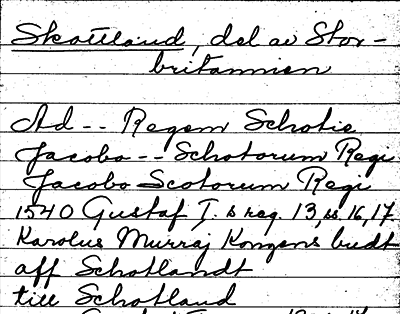 Skottland, del av Stor-
britannien
Ad -- Regem Schotie
Jacobo -- Schotorum Regi
Jacobo Scotorum Regi
1540 Gustaf I. s reg. 13, ss. 16, 17
Karolus Murraj Kongens budt
aff Schotlandt
till Schotland